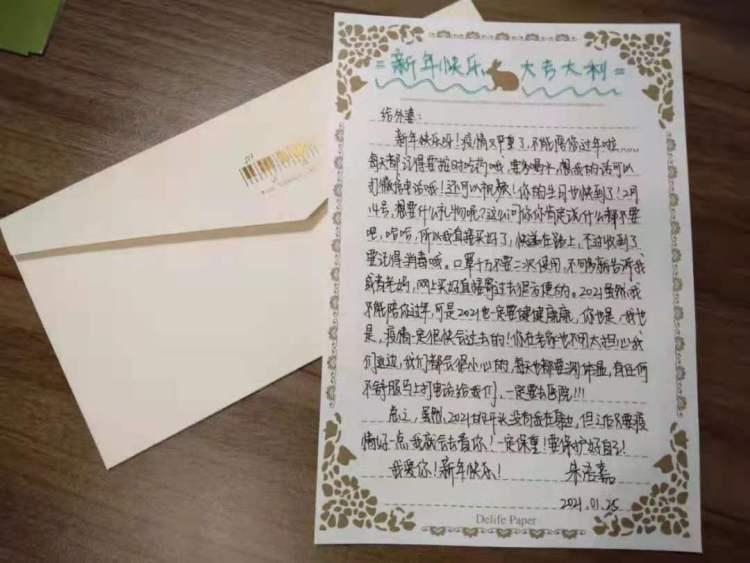 =新年快乐 大吉大利=
给外婆：
新年快乐呀！疫情又严重了，不能陪你过年啦......
每天都记得要按时吃药哦，要多喝水，想我的话可以
打微信电话哦！还可以视频！你的生日也快到了！2月
14号，想要什么礼物呢？这么问你你肯定说什么都不要
吧，哈哈，所以我直接买好了，快递在路上，不过收到了
要记得消毒哦。口罩千万不要二次使用，不够多就告诉我
或者老妈，网上买好直接寄过去很方便的。2021虽然我
不能陪你过年，可是2021也一定要健健康康，你也是，我也
是，疫情一定很快会过去的！你在老家也不用太担心我
们这边，我们都会很小心的，每天也都要测体温，有任何
不舒服马上打电话给我们，一定要去医院!!!
总之，虽然2021的开头没有我在身边，但
情好一点我就会去看你！一定保重！要保护好自己！
我爱你！新年快乐！ 朱 嘉
2021.01.25
Delife Paper